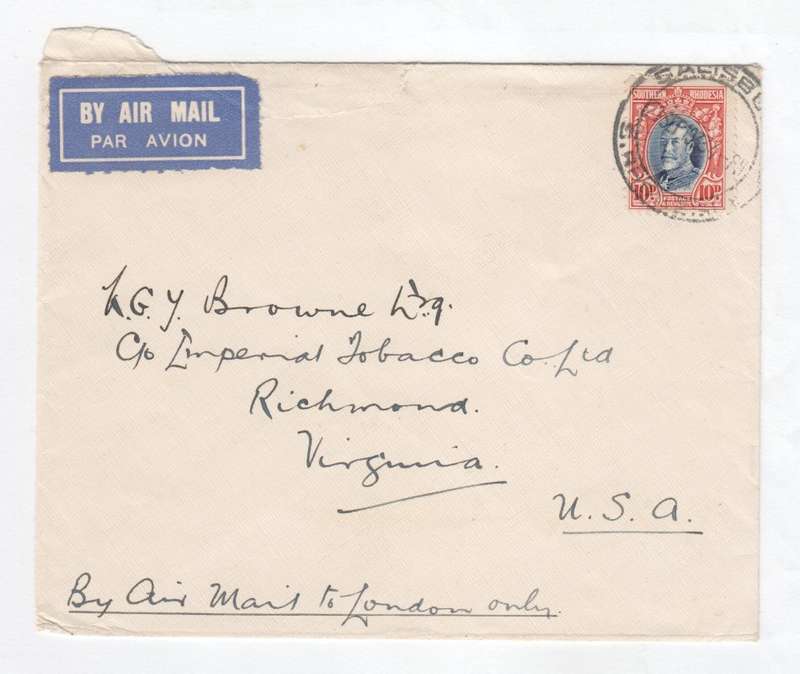 BY AIR MAIL
PAR AVION
SALISBU
SOUTHERN RHODESIA
10D POSTAGE & REVENUE 10D
Browne Esq.
C/o Imperial Tobacco Co. Ltd
Richmond.
Virginia.
U. S. A.
By Air Mail to London only.